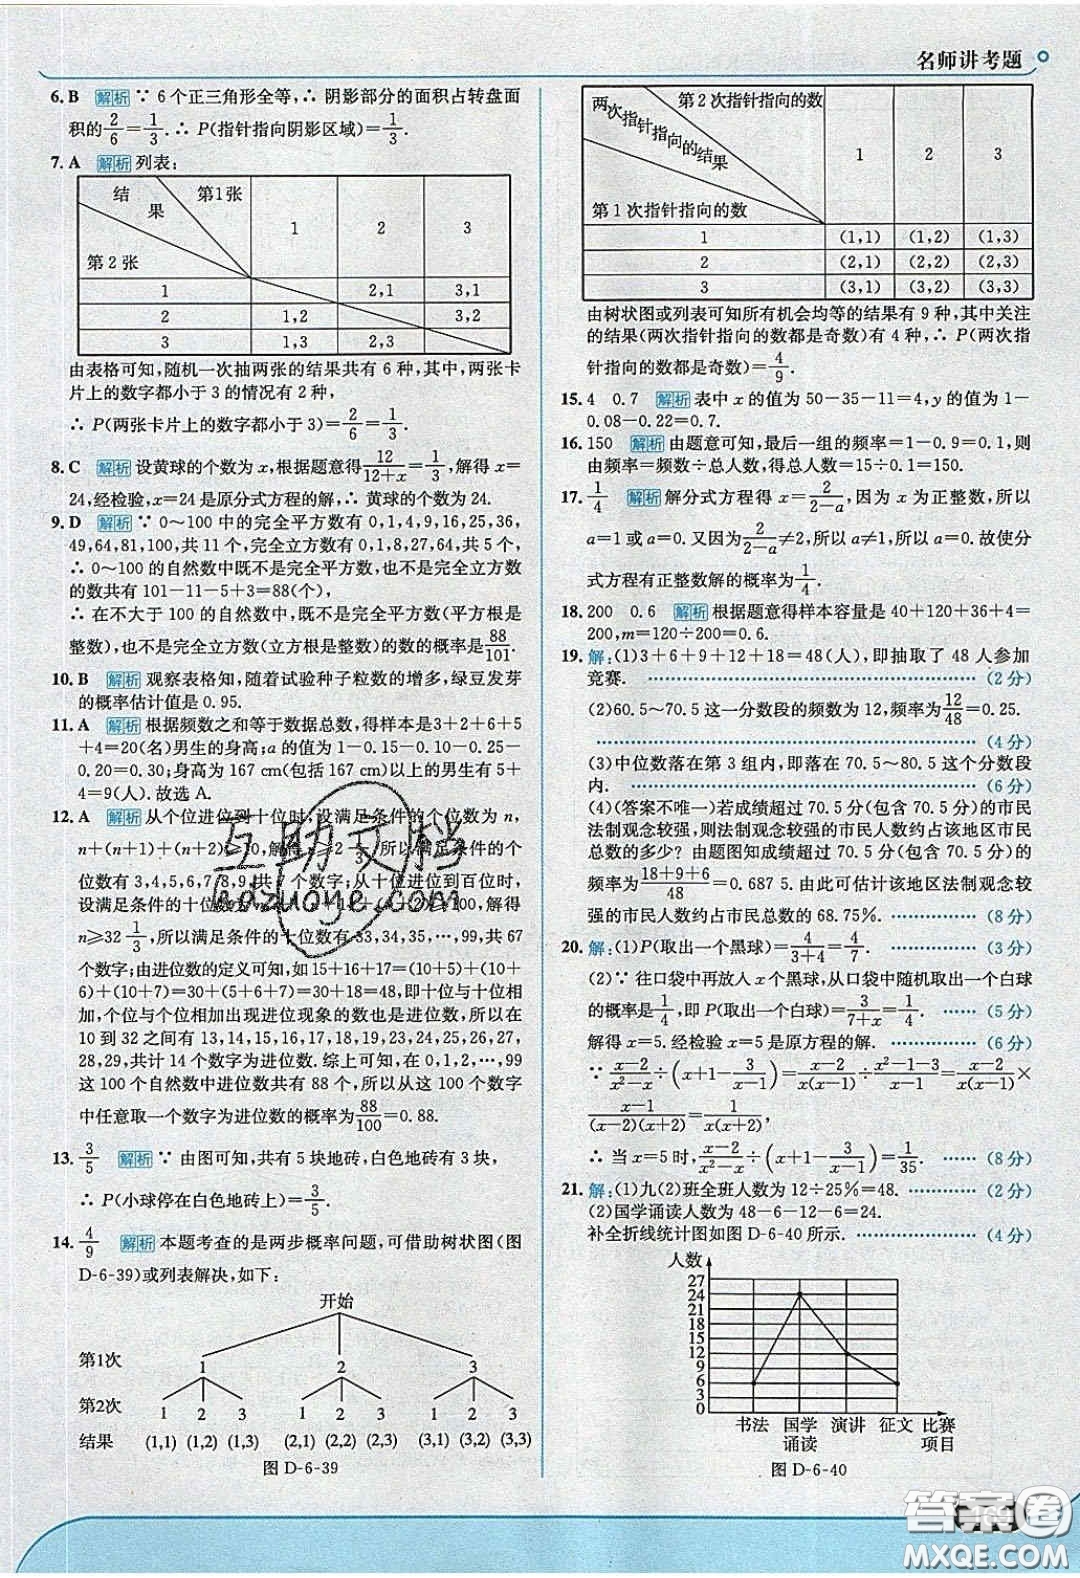 名师讲考题
6. B 解析 ∵ 6 个正三角形全等,∴ 阴影部分的面积占转盘面
积的2/6=1/3.∴ P(指针指向阴影区域)=1/3.
7. A 解析 列表:
结果 第1张 1 2 3
第 2 张
1 2,1 3,1
2 1,2 3,2
3 1,3 2,3
由表格可知,随机一次抽两张的结果共有 6 种,其中,两张卡
片上的数字都小于 3 的情况有 2 种,
∴ P(两张卡片上的数字都小于 3)=2/6=1/3.
8. C 解析 设黄球的个数为 x,根据题意得12/(12+x)=1/3,解得 x=
24,经检验,x=24 是原分式方程的解,∴ 黄球的个数为 24.
9. D 解析 ∵ 0～100 中的完全平方数有 0,1,4,9,16,25,36,
49,64,81,100,共 11 个,完全立方数有 0,1,8,27,64,共 5 个,
∴ 0～100 的自然数中既不是完全平方数,也不是完全立方数
的数共有 101-11-5+3=88(个),
∴ 在不大于 100 的自然数中,既不是完全平方数(平方根是
整数),也不是完全立方数(立方根是整数)的数的概率是88/101.
10. B 解析 观察表格知,随着试验种子粒数的增多,绿豆发芽
的概率估计值是 0.95.
11. A 解析 根据频数之和等于数据总数,得样本是3+2+6+5
+4=20(名)男生的身高;a 的值为 1-0.15-0.10-0.25-
0.20=0.30;身高为 167 cm(包括 167 cm)以上的男生有 5+
4=9(人).故选 A.
12. A 解析 从个位进位到十位时,设满足条件的个位数为 n,
n+(n+1)+(n+2)≥10,解得
个位数有 3,4,5,6,7,8,9,共 7 个数字;从十位进位到百位时,
设满足条件的十位数为
n≥32 1/3,所以满足条件的十位数有 33,34,35,…,99,共 67
个数字;由进位数的定义可知,如 15+16+17=(10+5)+(10+
6)+(10+7)=30+(5+6+7)=30+18=48,即十位与十位相
加,个位与个位相加出现进位现象的数也是进位数,所以在
10 到 32 之间有 13,14,15,16,17,18,19,23,24,25,26,27,
28,29,共计 14 个数字为进位数.综上可知,在 0,1,2,…,99
这 100 个自然数中进位数共有 88 个,所以从这 100 个数字
中任意取一个数字为进位数的概率为88/100=0.88.
13. 3/5 解析 ∵ 由图可知,共有 5 块地砖,白色地砖有 3 块,
∴ P(小球停在白色地砖上)=3/5.
14. 4/9 解析 本题考查的是两步概率问题,可借助树状图(图
D-6-39)或列表解决,如下:
开始
第1次 1 2 3
第2次 1 2 3 1 2 3 1 2 3
结果 (1,1) (1,2) (1,3) (2,1) (2,2) (2,3) (3,1) (3,2) (3,3)
图 D-6-39
两次指针指向的结果 第 2 次指针指向的数 1 2 3
第 1 次指针指向的数
1 (1,1) (1,2) (1,3)
2 (2,1) (2,2) (2,3)
3 (3,1) (3,2) (3,3)
由树状图或列表可知所有机会均等的结果有 9 种,其中关注
的结果(两次指针指向的数都是奇数)有 4 种,∴ P(两次指
针指向的数都是奇数)=4/9.
15. 4 0.7 解析 表中 x 的值为 50-35-11=4,y 的值为 1-
0.08-0.22=0.7.
16. 150 解析 由题意可知,最后一组的频率=1-0.9=0.1,则
由频率=频数÷总人数,得总人数=15÷0.1=150.
17. 1/4 解析 解分式方程得 x=2/(2-a),因为 x 为正整数,所以
a=1 或 a=0.又因为2/(2-a)≠2,所以 a≠1,所以 a=0.故使分
式方程有正整数解的概率为1/4.
18. 200 0.6 解析 根据题意得样本容量是 40+120+36+4=
200,m=120÷200=0.6.
19. 解:(1)3+6+9+12+18=48(人),即抽取了 48 人参加
竞赛. (2 分)
(2)60.5～70.5 这一分数段的频数为 12,频率为12/48=0.25.
(4 分)
(3)中位数落在第 3 组内,即落在 70.5～80.5 这个分数段
内. (6 分)
(4)(答案不唯一)若成绩超过 70.5 分(包含 70.5 分)的市民
法制观念较强,则法制观念较强的市民人数约占该地区市民
总数的多少? 由题图知成绩超过 70.5 分(包含 70.5 分)的
频率为(18+9+6)/48=0.687 5.由此可估计该地区法制观念较
强的市民人数约占市民总数的 68.75%. (8 分)
20. 解:(1)P(取出一个黑球)=4/(3+4)=4/7. (3 分)
(2)∵ 往口袋中再放入 x 个黑球,从口袋中随机取出一个白球
的概率是1/4,即 P(取出一个白球)=3/(7+x)=1/4. (5 分)
解得 x=5.经检验 x=5 是原方程的解. (6 分)
∵ (x-2)/(x²-x)÷(x+1-3/(x-1))=(x-2)/(x(x-1))÷(x²-4)/(x-1)=(x-2)/(x(x-1))×
(x-1)/((x-2)(x+2))=1/(x(x+2)),
∴ 当 x=5 时,(x-2)/(x²-x)÷(x+1-3/(x-1))=1/35. (8 分)
21. 解:(1)九(2)班全班人数为 12÷25%=48. (2 分)
(2)国学诵读人数为 48-6-12-6=24.
补全折线统计图如图 D-6-40 所示. (4 分)
人数
27
24
21
18
15
12
9
6
3
0
书法 国学诵读 演讲 征文 比赛项目
图 D-6-40
互助文档
hdzuoye.com
答案圈
MXQE.COM